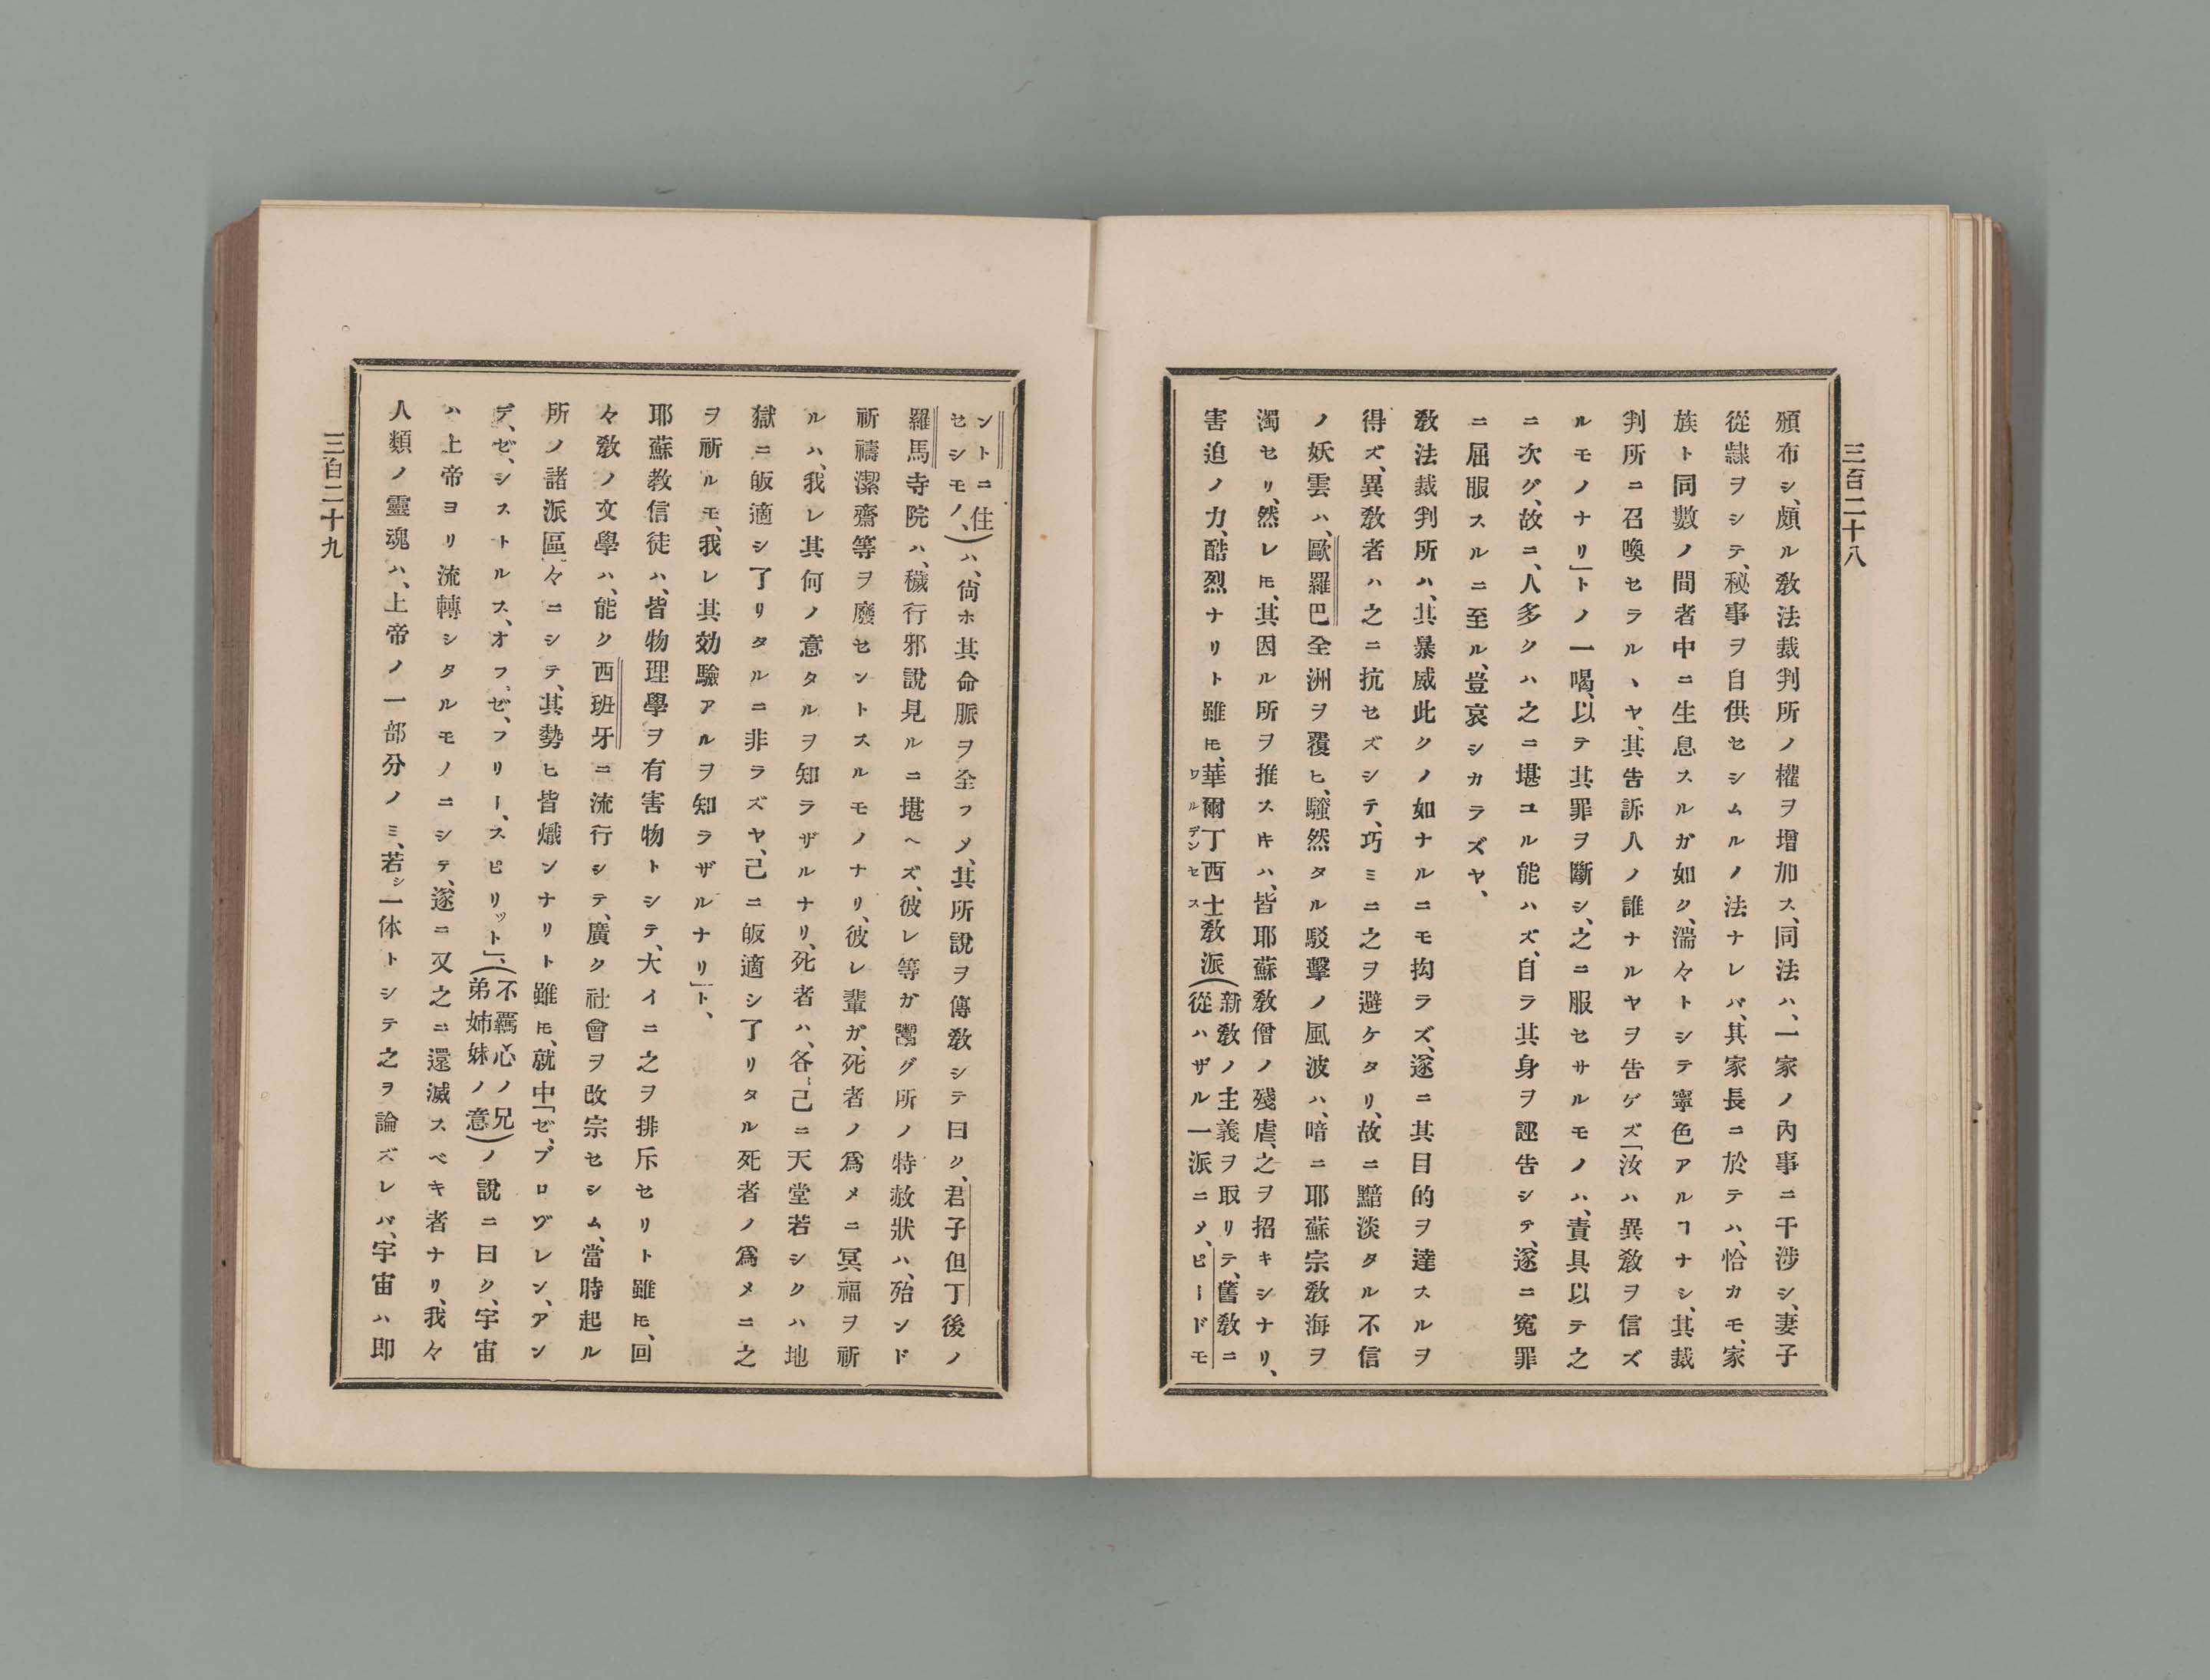 三百二十八
頒布シ、頗ル敎法裁判所ノ權ヲ增加ス、同法ハ、一家ノ內事ニ干涉シ、妻子
從隷ヲシテ、秘事ヲ自供セシムルノ法ナレバ、其家長ニ於テハ、恰カモ、家
族ト同數ノ間者中ニ生息スルガ如ク、湍々トシテ寧色アルヿナシ、其裁
判所ニ召喚セラル、ヤ、其告訴人ノ誰ナルヤヲ告ゲズ「汝ハ異敎ヲ信ズ
ルモノナリ」トノ一喝、以テ其罪ヲ斷シ、之ニ服セサルモノハ、責具以テ之
ニ次グ、故ニ、人多クハ之ニ堪ユル能ハズ、自ラ其身ヲ誣告シテ、遂ニ冤罪
ニ屈服スルニ至ル、豈哀シカラズヤ、
敎法裁判所ハ、其暴威此クノ如ナルニモ拘ラズ、遂ニ其目的ヲ達スルヲ
得ズ、異敎者ハ之ニ抗セズシテ、巧ミニ之ヲ避ケタリ、故ニ黯淡タル不信
ノ妖雲ハ、歐羅巴全洲ヲ覆ヒ、騷然タル駁擊ノ風波ハ、暗ニ耶蘇宗敎海ヲ
濁セリ、然レ𪜈、其因ル所ヲ推スキハ、皆耶蘇敎僧ノ殘虐、之ヲ招キシナリ、
害迫ノ力、酷烈ナリト雖𪜈、華爾丁西士敎派(新敎ノ主義ヲ取リテ、舊敎ニ
ワルデンセス
從ハザル一派ニメ、ピードモ
ントニ住
セシモノ、)ハ、尙ホ其命脈ヲ全フメ、其所說ヲ傳敎シテ曰ク、君子但丁後ノ
羅馬寺院ハ、穢行邪說見ルニ堪ヘズ、彼レ等ガ鬻グ所ノ特赦狀ハ、殆ンド
祈禱潔齋等ヲ廢セントスルモノナリ、彼レ輩ガ、死者ノ爲メニ冥福ヲ祈
ルハ、我レ其何ノ意タルヲ知ラザルナリ、死者ハ、各〻己ニ天堂若シクハ地
獄ニ皈適シ了リタルニ非ラズヤ、己ニ皈適シ了リタル死者ノ爲メニ之
ヲ祈ルモ、我レ其効驗アルヲ知ラザルナリ」ト、
耶蘇敎信徒ハ、皆物理學ヲ有害物トシテ、大イニ之ヲ排斥セリト雖𪜈、回
々敎ノ文學ハ、能ク西班牙ニ流行シテ、廣ク社會ヲ改宗セシム、當時起ル
所ノ諸派區々ニシテ、其勢ヒ皆熾ンナリト雖𪜈、就中「ゼ、ブロヅレン、アン
デ、ゼ、シストルス、オフ、ゼ、フリー、スピリット」、(不羈心ノ兄
弟姉妹ノ意)ノ說ニ曰ク、宇宙
ハ上帝ヨリ流轉シタルモノニシテ、遂ニ又之ニ還滅スベキ者ナリ、我々
人類ノ靈魂ハ、上帝ノ一部分ノミ、若シ一体トシテ之ヲ論ズレバ、宇宙ハ即
三百二十九